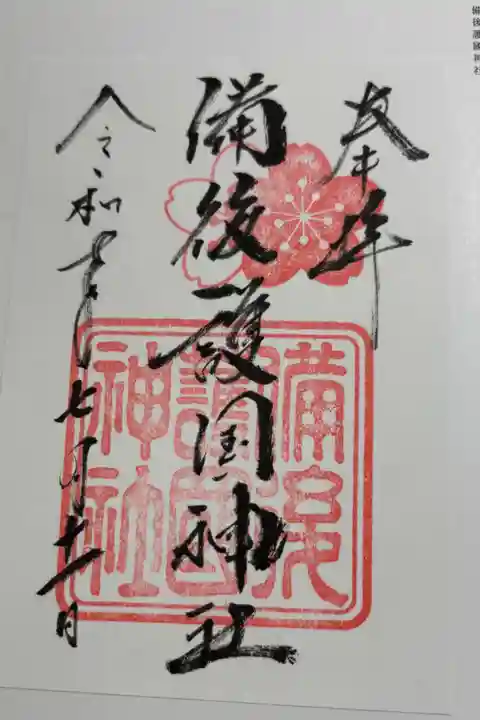 備後護國神社
奉拝
備後護国神社
令和年七月十一日
備後
護國
神社